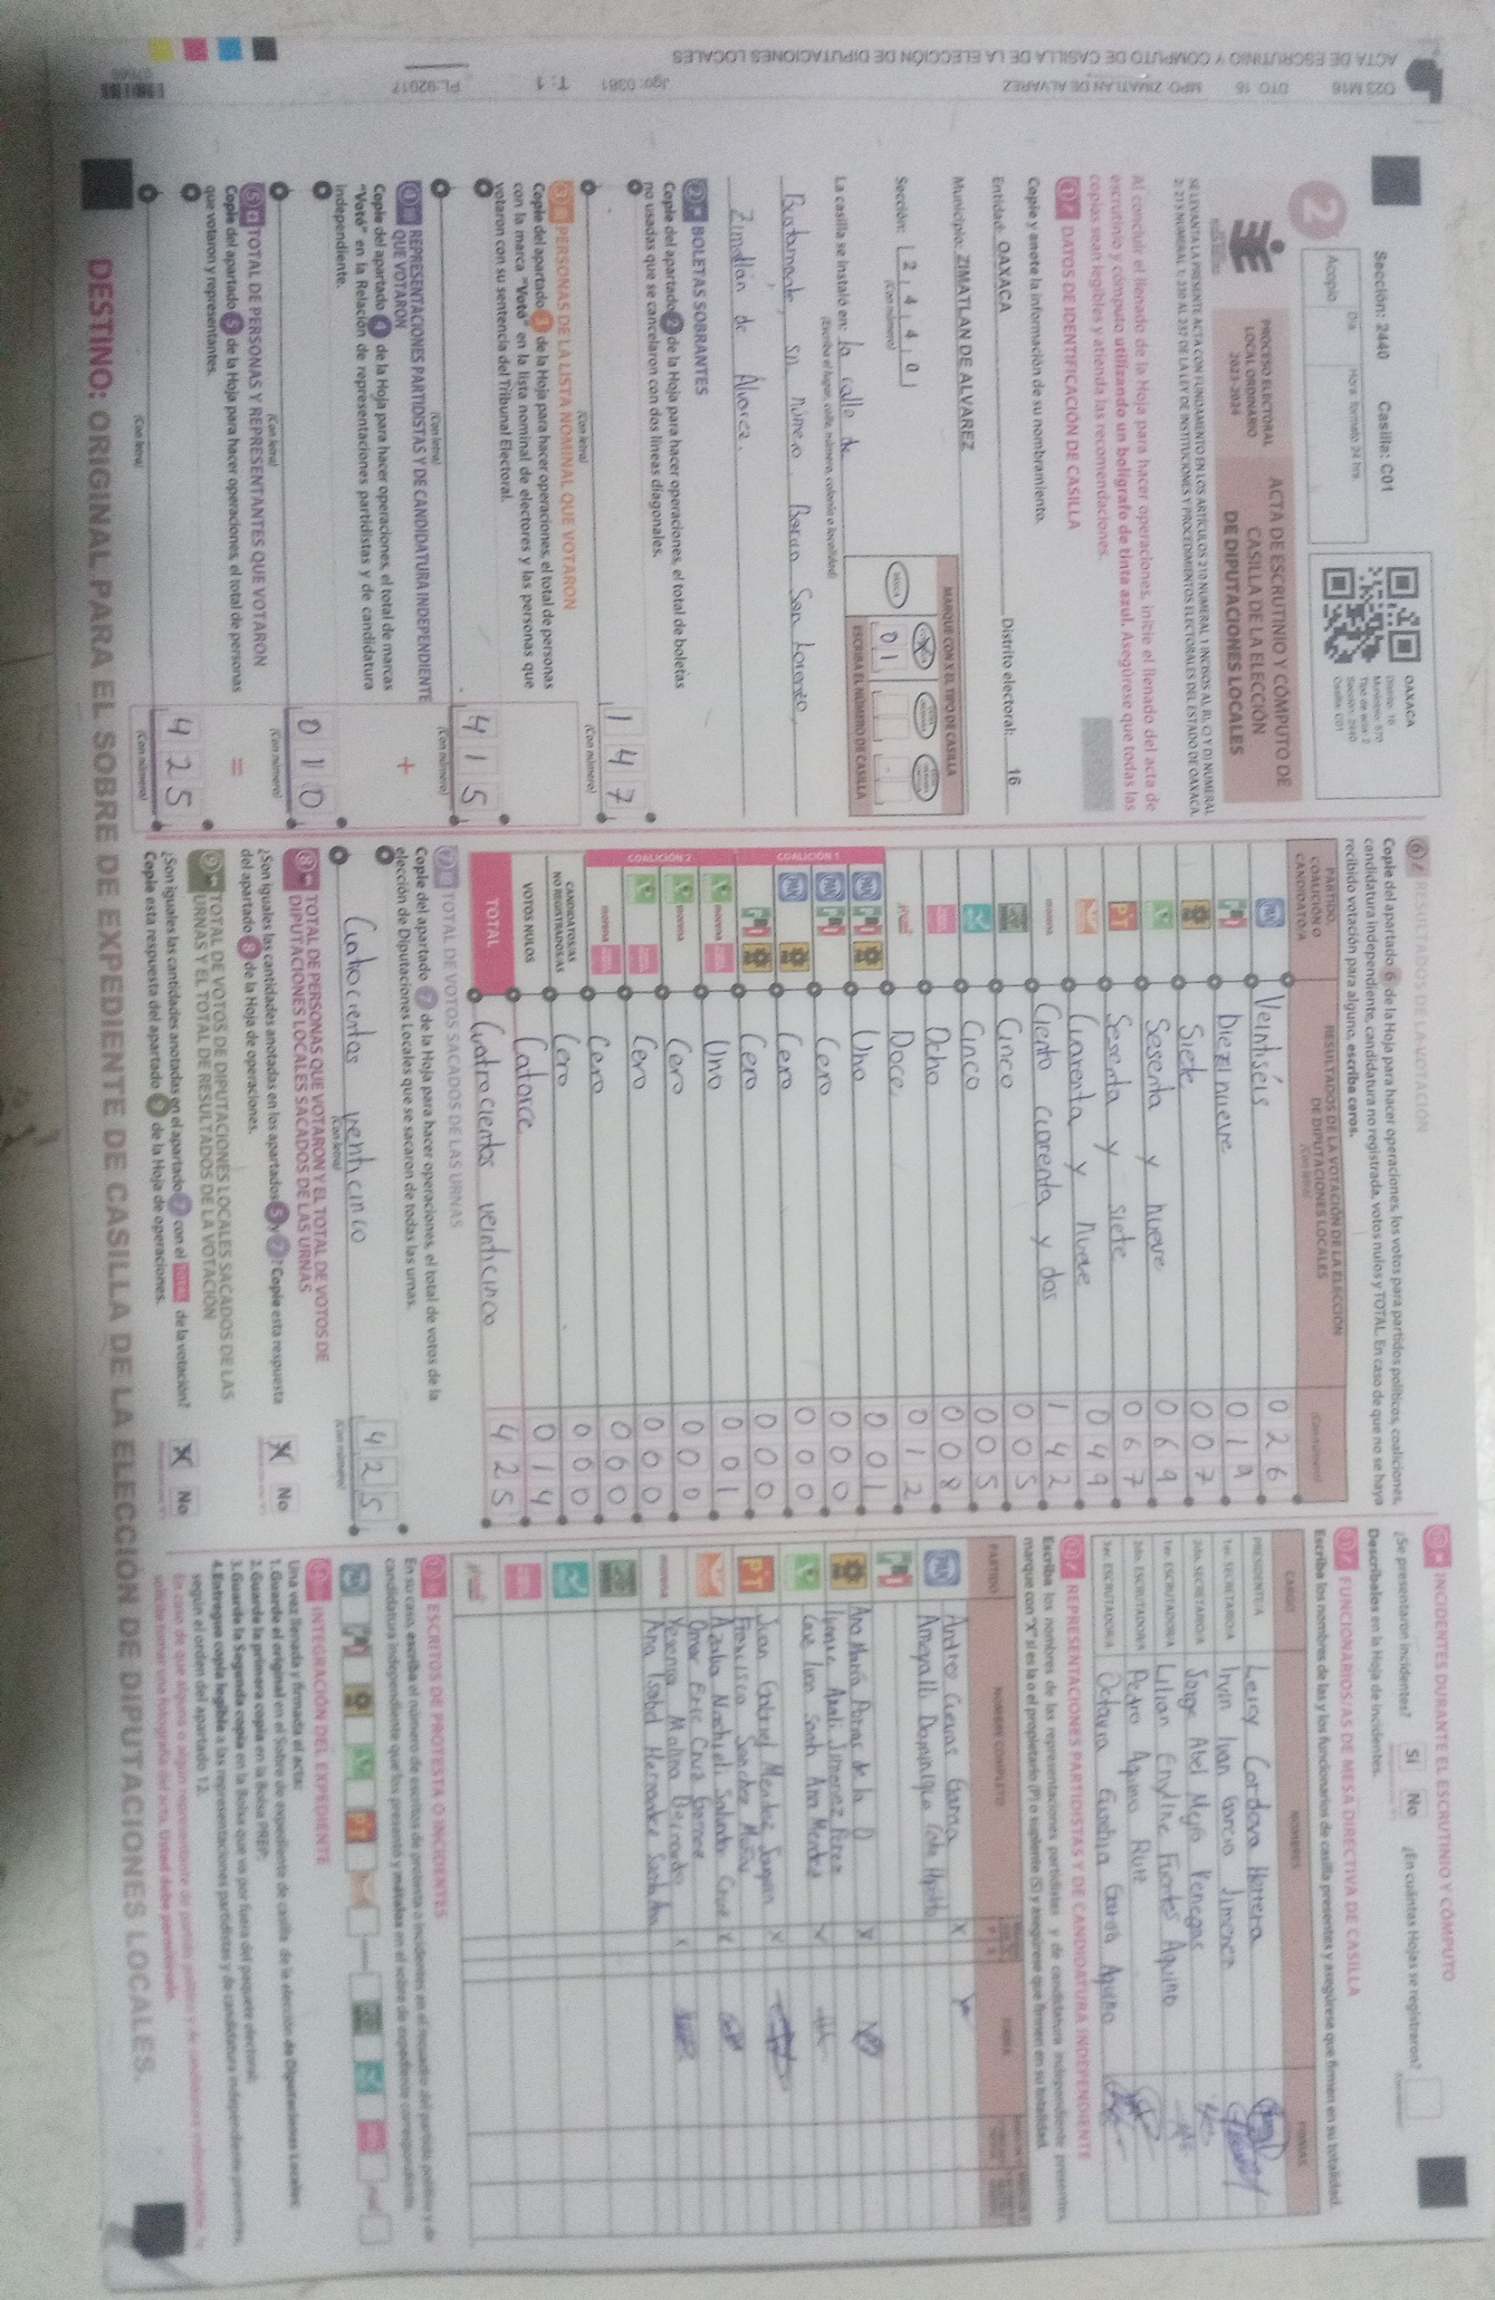 Sección: 2440 Casilla: C01
2
Acopio
PROCESO ELECTORAL
LOCAL ORDINARIO
2023-2024
ACTA DE ESCRUTINIO Y CÓMPUTO DE
CASILLA DE LA ELECCIÓN
DE DIPUTACIONES LOCALES
OAXACA
Al concluir el llenado de la Hoja para hacer operaciones, inicie el llenado del acta de
escrutinio y cómputo utilizando un bolígrafo de tinta azul. Asegúrese que todas las
copias sean legibles y atienda las recomendaciones.
1 DATOS DE IDENTIFICACIÓN DE CASILLA
Copie y anote la información de su nombramiento.
Entidad: OAXACA Distrito electoral: 16
Municipio: ZIMATLAN DE ALVAREZ
MARQUE CON X EL TIPO DE CASILLA
Sección: 2 4 4 0
(Con número)
0 1
ESCRIBA EL NÚMERO DE CASILLA
La casilla se instaló en: la calle de
(Escriba el lugar, calle, número, colonia o localidad)
sn número Barrio San Lorenzo,
Zimatlán de Álvarez.
2 BOLETAS SOBRANTES
Copie del apartado 2 de la Hoja para hacer operaciones, el total de boletas
no usadas que se cancelaron con dos líneas diagonales.
1 4 7
(Con letra) (Con número)
3 PERSONAS DE LA LISTA NOMINAL QUE VOTARON
Copie del apartado 3 de la Hoja para hacer operaciones, el total de personas
con la marca "Votó" en la lista nominal de electores y las personas que
votaron con su sentencia del Tribunal Electoral.
4 1 5
(Con letra) (Con número)
4 REPRESENTACIONES PARTIDISTAS Y DE CANDIDATURA INDEPENDIENTE
QUE VOTARON
Copie del apartado 4 de la Hoja para hacer operaciones, el total de marcas
"Votó" en la Relación de representaciones partidistas y de candidatura
independiente.
+
0 1 0
(Con letra) (Con número)
5 TOTAL DE PERSONAS Y REPRESENTANTES QUE VOTARON
Copie del apartado 5 de la Hoja para hacer operaciones, el total de personas
que votaron y representantes.
=
4 2 5
(Con letra) (Con número)
6 RESULTADOS DE LA VOTACIÓN
Copie del apartado 6 de la Hoja para hacer operaciones, los votos para partidos políticos, coaliciones,
candidatura independiente, candidatura no registrada, votos nulos y TOTAL. En caso de que no se haya
recibido votación para alguno, escriba ceros.
PARTIDO,
COALICIÓN O
CANDIDATO/A
RESULTADOS DE LA VOTACIÓN DE LA ELECCIÓN
DE DIPUTACIONES LOCALES
PAN Veintiséis 0 2 6
PRI Diezinueve 0 1 9
PRD Siete 0 0 7
Sesenta y nueve 0 6 9
PT Sesenta y siete 0 6 7
Cuarenta y nueve 0 4 9
morena Ciento cuarenta y dos 1 4 2
Cinco 0 0 5
Cinco 0 0 5
Ocho 0 0 8
Doce 0 1 2
COALICIÓN 1
PAN PRI PRD Uno 0 0 1
PAN PRI Cero 0 0 0
PAN PRD Cero 0 0 0
PRI PRD Cero 0 0 0
COALICIÓN 2
morena Uno 0 0 1
morena Cero 0 0 0
Cero 0 0 0
morena Cero 0 0 0
CANDIDATOS/AS
NO REGISTRADOS/AS Cero 0 0 0
VOTOS NULOS Catorce 0 1 4
TOTAL Cuatrocientos veinticinco 4 2 5
7 TOTAL DE VOTOS SACADOS DE LAS URNAS
Copie del apartado 7 de la Hoja para hacer operaciones, el total de votos de la
elección de Diputaciones Locales que se sacaron de todas las urnas.
Cuatrocientos venticinco 4 2 5
(Con letra) (Con número)
8 TOTAL DE PERSONAS QUE VOTARON Y EL TOTAL DE VOTOS DE
DIPUTACIONES LOCALES SACADOS DE LAS URNAS
¿Son iguales las cantidades anotadas en los apartados 5 y 7? Copie esta respuesta
del apartado 8 de la Hoja de operaciones.
X No
9 TOTAL DE VOTOS DE DIPUTACIONES LOCALES SACADOS DE LAS
URNAS Y EL TOTAL DE RESULTADOS DE LA VOTACIÓN
¿Son iguales las cantidades anotadas en el apartado 7 con el TOTAL de la votación?
Copie esta respuesta del apartado 9 de la Hoja de operaciones.
X No
10 INCIDENTES DURANTE EL ESCRUTINIO Y CÓMPUTO
¿Se presentaron incidentes? Sí No ¿En cuántas Hojas se registraron?
Descríbalos en la Hoja de incidentes.
11 FUNCIONARIOS/AS DE MESA DIRECTIVA DE CASILLA
Escriba los nombres de las y los funcionarios de casilla presentes y asegúrese que firmen en su totalidad.
CARGO NOMBRES FIRMAS
PRESIDENTE/A Leicy Cordova Herrera
1er. SECRETARIO/A Irvin Ivan Garcia Jimenez
2do. SECRETARIO/A Jorge Abel Mejía Venegas
1er. ESCRUTADOR/A Lilian Enyline Fuentes Aquino
2do. ESCRUTADOR/A Pedro Aquino Ruiz
3er. ESCRUTADOR/A Octavia Garcia Aquino
12 REPRESENTACIONES PARTIDISTAS Y DE CANDIDATURA INDEPENDIENTE
Escriba los nombres de las representaciones partidistas y de candidatura independiente presentes,
marque con "X" si es la o el propietario (P) o suplente (S) y asegúrese que firmen en su totalidad.
PARTIDO NOMBRE COMPLETO FIRMA
PAN Andres Cuevas Garcia X
Amayalli Dominique
PRD Ana María Porras de la O X
Jimenez Perez
Juan Gabriel Mendez X
PT Francisca Sanchez
Cruz X
Omar Eric Cruz
morena Yesenia Molina X
Ana Isabel Hernandez
13 ESCRITOS DE PROTESTA O INCIDENTES
En su caso, escriba el número de escritos de protesta o incidentes en el recuadro del partido político y de
candidatura independiente que los presentó y métalos en el sobre de expediente correspondiente.
14 INTEGRACIÓN DEL EXPEDIENTE
Una vez llenada y firmada el acta:
1. Guarde el original en el Sobre de expediente de casilla de la elección de Diputaciones Locales.
2. Guarde la primera copia en la Bolsa PREP.
3. Guarde la Segunda copia en la Bolsa que va por fuera del paquete electoral.
4. Entregue copia legible a las representaciones partidistas y de candidatura independiente presentes,
según el orden del apartado 12.
DESTINO: ORIGINAL PARA EL SOBRE DE EXPEDIENTE DE CASILLA DE LA ELECCIÓN DE DIPUTACIONES LOCALES.
023 M16 DTO 16 MPO ZIMATLAN DE ALVAREZ Jgo: 0381 T: 1
ACTA DE ESCRUTINIO Y COMPUTO DE CASILLA DE LA ELECCIÓN DE DIPUTACIONES LOCALES